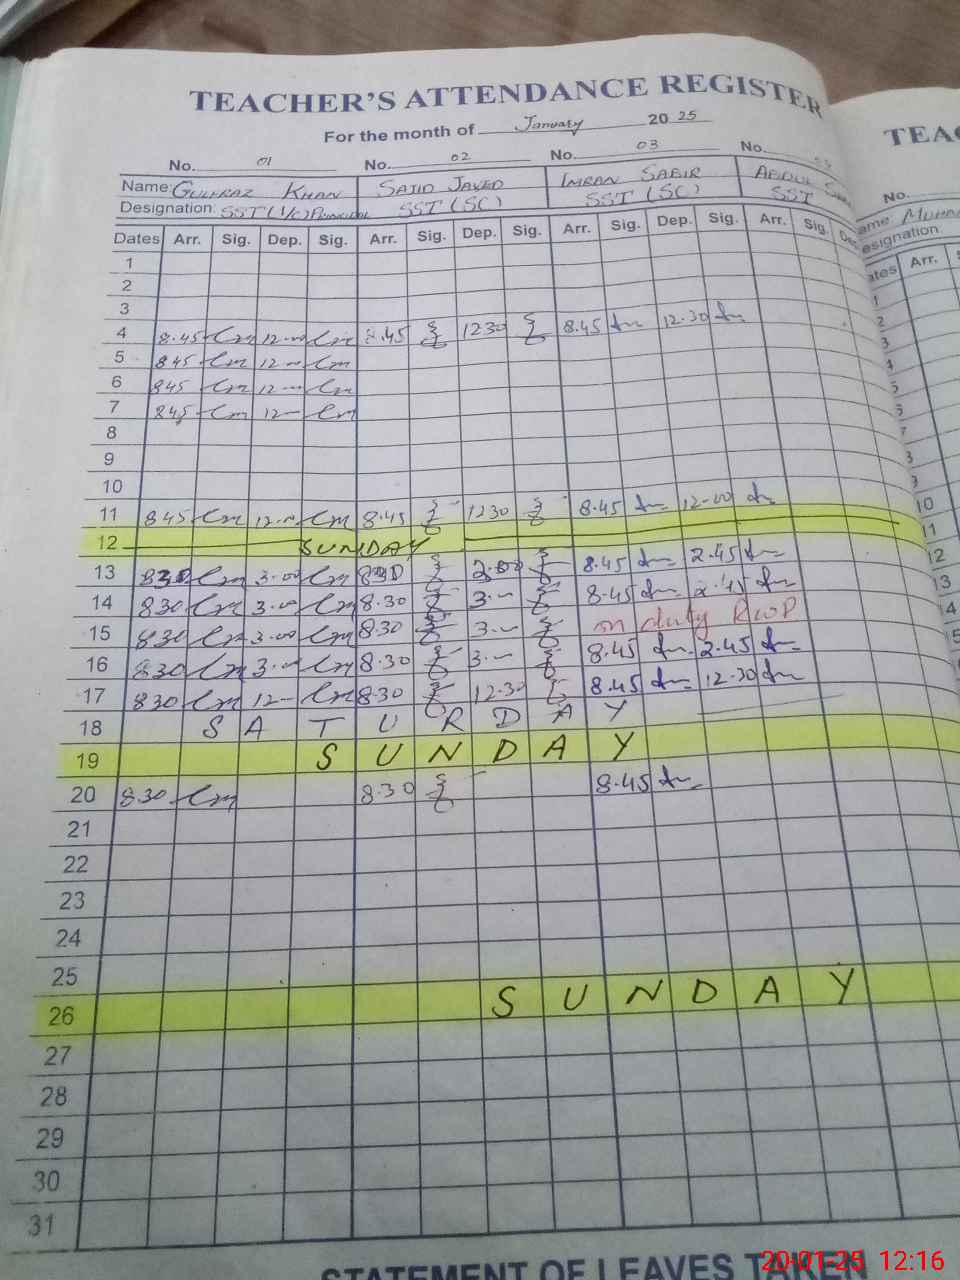 TEACHER'S ATTENDANCE REGISTER
For the month of January 2025
No. 01 No. 02 No. 03 No.
Name: GULFRAZ KHAN SAJID JAVED IMRAN SABIR ABDUL
Designation: SST (I/C) Principal SST (SC) SST (SC) SST
Dates Arr. Sig. Dep. Sig. Arr. Sig. Dep. Sig. Arr. Sig. Dep. Sig. Arr. Sig.
1
2
3
4 8.45 12-00 8.45 1230 8.45 12.30
5 845 12-
6 845 12-
7 845 12-
8
9
10
11 845 12-00 8.45 1230 8.45 12-00
12 SUNDAY
13 830 3.00 830 3.00 8.45 2.45
14 830 3-00 8.30 3- 8.45 2.45
15 830 3-00 8.30 3- on duty RWP
16 830 3-00 8.30 3- 8.45 2.45
17 830 12- 8.30 12.30 8.45 12-30
18 SATURDAY
19 SUNDAY
20 8.30 8.30 8.45
21
22
23
24
25
26 SUNDAY
27
28
29
30
31
STATEMENT OF LEAVES TAKEN
TEAC
No.
ame:
esignation:
ates Arr.
1
2
3
4
5
6
7
8
9
10
11
12
13
14
15
20-01-25 12:16